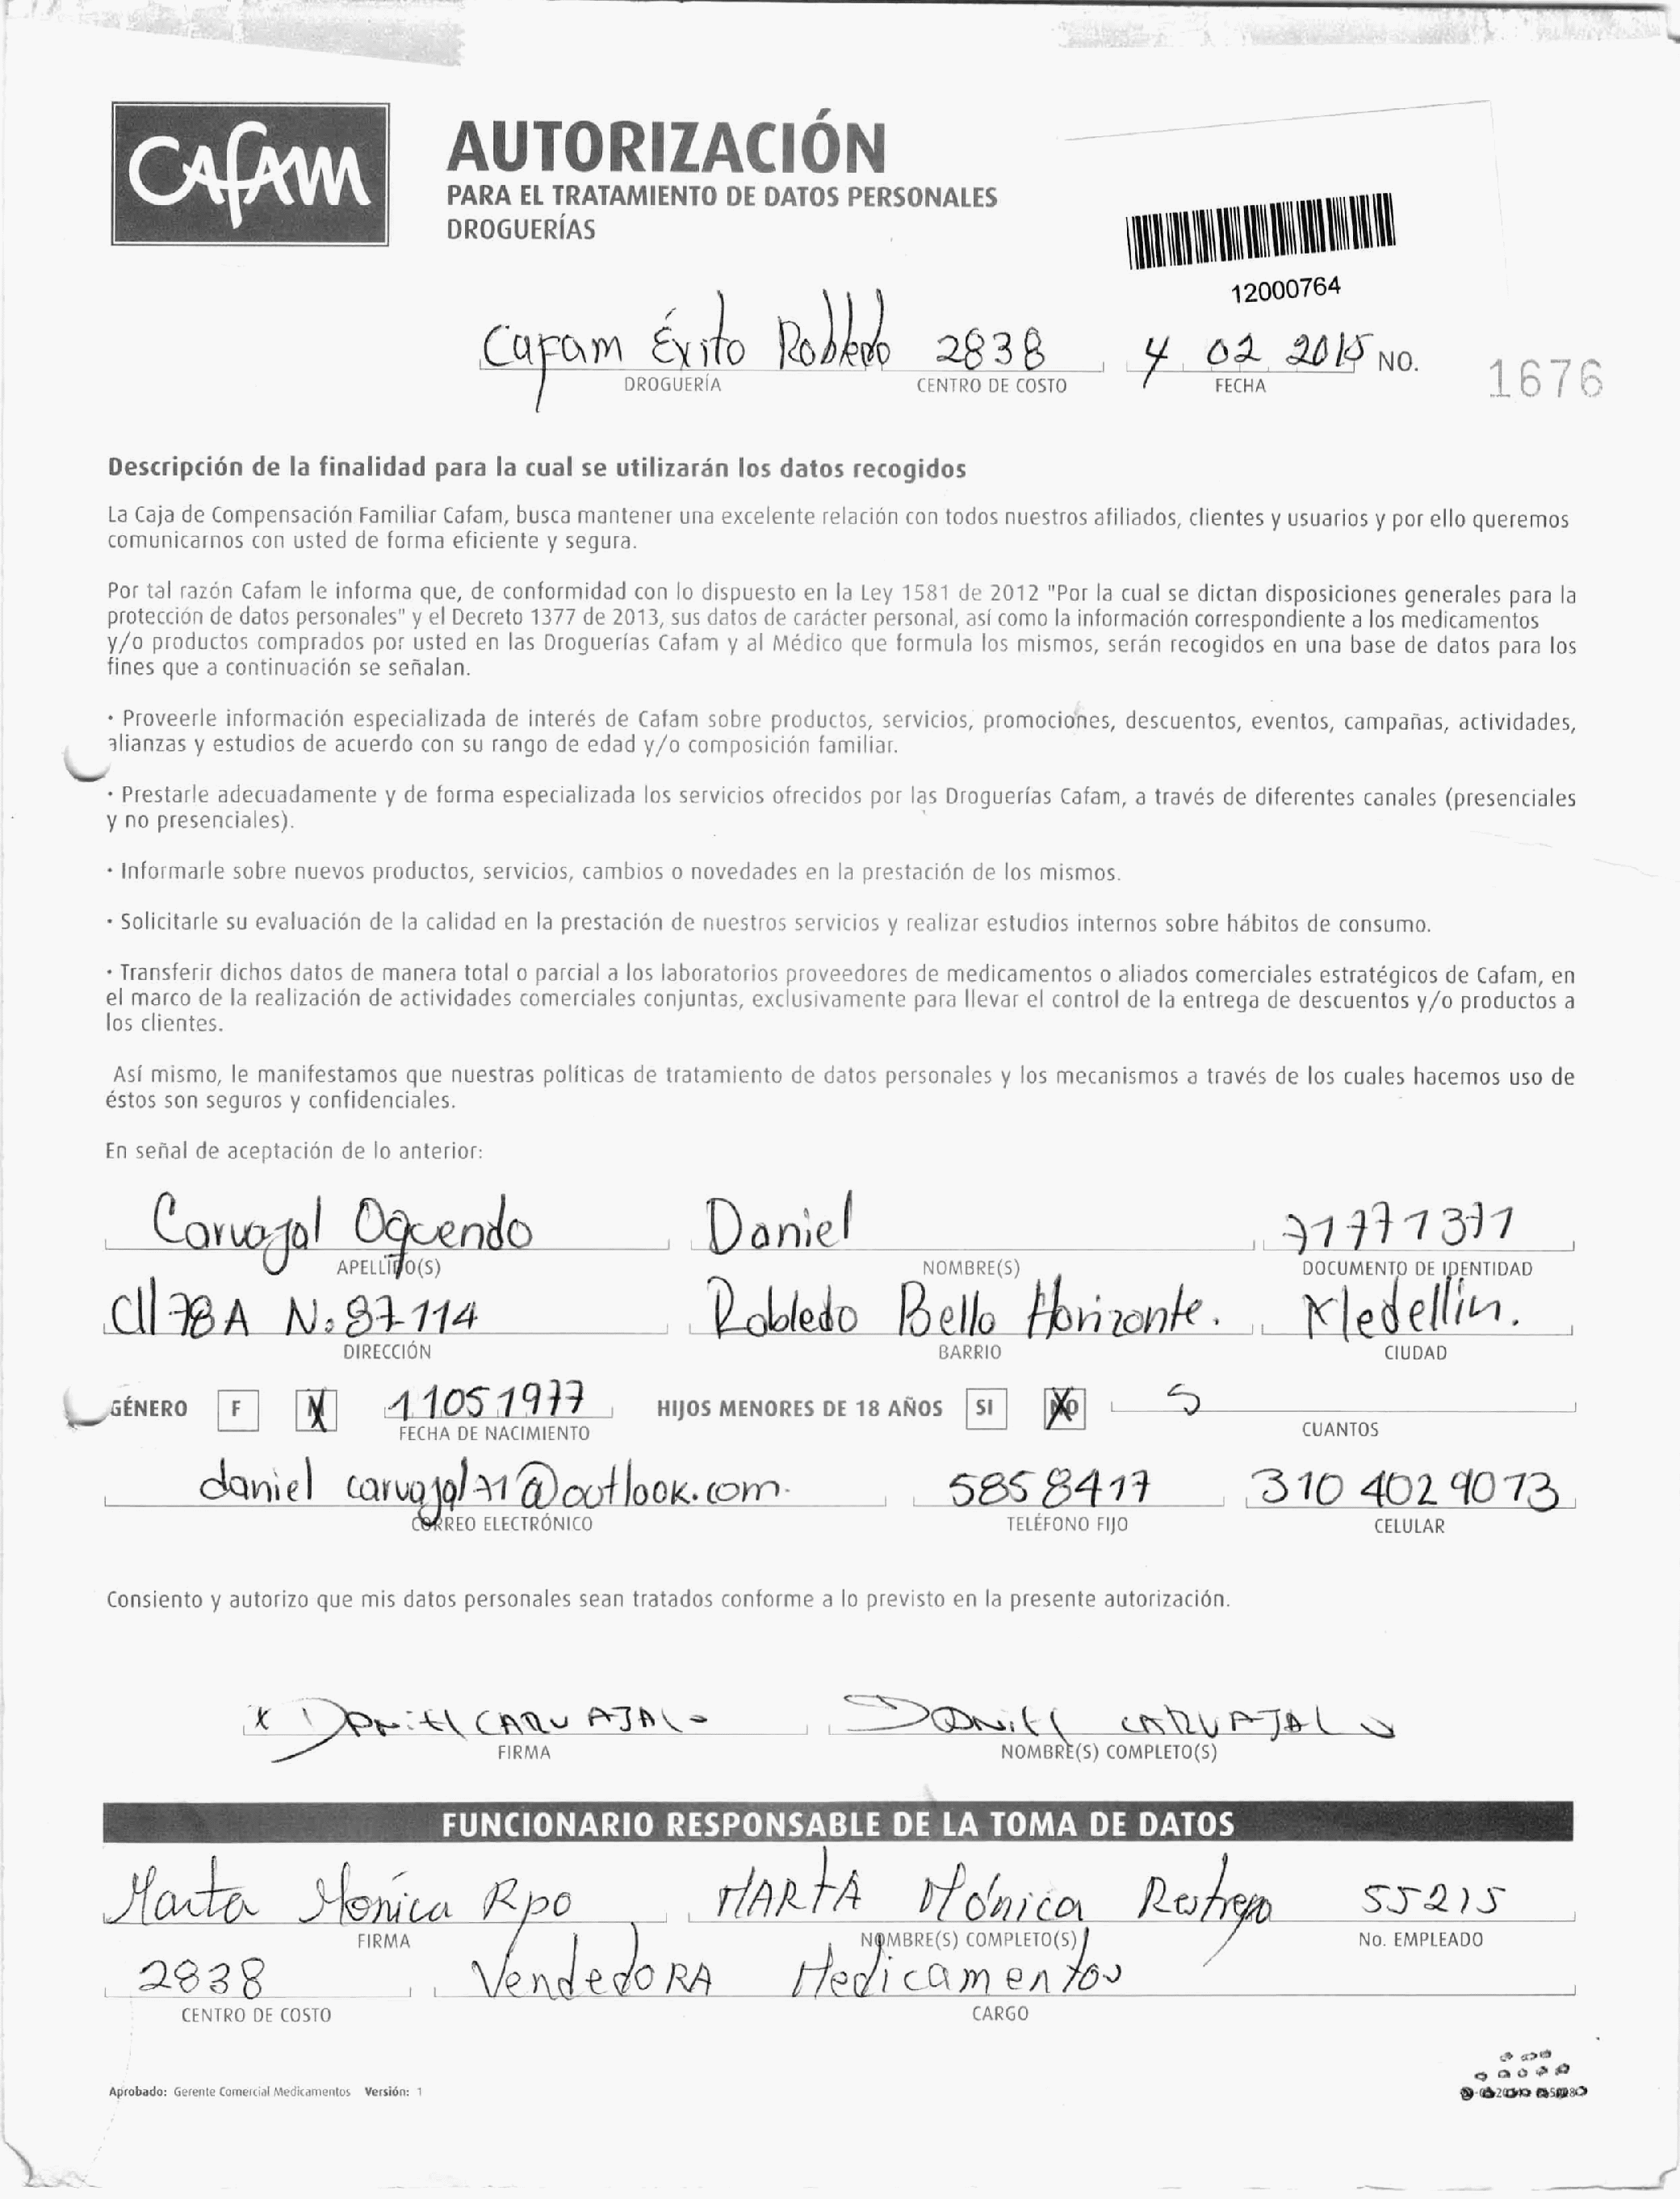 CAFAM
AUTORIZACIÓN
PARA EL TRATAMIENTO DE DATOS PERSONALES
DROGUERÍAS
12000764
Cafam Éxito Robledo 2838 4 02 2015 NO. 1676
DROGUERÍA CENTRO DE COSTO FECHA
Descripción de la finalidad para la cual se utilizarán los datos recogidos
La Caja de Compensación Familiar Cafam, busca mantener una excelente relación con todos nuestros afiliados, clientes y usuarios y por ello queremos
comunicarnos con usted de forma eficiente y segura.
Por tal razón Cafam le informa que, de conformidad con lo dispuesto en la Ley 1581 de 2012 "Por la cual se dictan disposiciones generales para la
protección de datos personales" y el Decreto 1377 de 2013, sus datos de carácter personal, así como la información correspondiente a los medicamentos
y/o productos comprados por usted en las Droguerías Cafam y al Médico que formula los mismos, serán recogidos en una base de datos para los
fines que a continuación se señalan.
· Proveerle información especializada de interés de Cafam sobre productos, servicios, promociones, descuentos, eventos, campañas, actividades,
alianzas y estudios de acuerdo con su rango de edad y/o composición familiar.
· Prestarle adecuadamente y de forma especializada los servicios ofrecidos por las Droguerías Cafam, a través de diferentes canales (presenciales
y no presenciales).
· Informarle sobre nuevos productos, servicios, cambios o novedades en la prestación de los mismos.
· Solicitarle su evaluación de la calidad en la prestación de nuestros servicios y realizar estudios internos sobre hábitos de consumo.
· Transferir dichos datos de manera total o parcial a los laboratorios proveedores de medicamentos o aliados comerciales estratégicos de Cafam, en
el marco de la realización de actividades comerciales conjuntas, exclusivamente para llevar el control de la entrega de descuentos y/o productos a
los clientes.
Así mismo, le manifestamos que nuestras políticas de tratamiento de datos personales y los mecanismos a través de los cuales hacemos uso de
éstos son seguros y confidenciales.
En señal de aceptación de lo anterior:
Carvajal Oquendo Daniel 71771371
APELLIDO(S) NOMBRE(S) DOCUMENTO DE IDENTIDAD
Cll 78A No 87 114 Robledo Bello Horizonte. Medellin.
DIRECCIÓN BARRIO CIUDAD
GÉNERO F M 11051977 HIJOS MENORES DE 18 AÑOS SI NO 5
FECHA DE NACIMIENTO CUANTOS
daniel carvajal71@outlook.com. 5858417 310 402 9073
CORREO ELECTRÓNICO TELÉFONO FIJO CELULAR
Consiento y autorizo que mis datos personales sean tratados conforme a lo previsto en la presente autorización.
x Daniel CARVAJAL Daniel CARVAJAL
FIRMA NOMBRE(S) COMPLETO(S)
FUNCIONARIO RESPONSABLE DE LA TOMA DE DATOS
Marta Monica Rpo MARTA Mónica Restrepo 55215
FIRMA NOMBRE(S) COMPLETO(S) No. EMPLEADO
2838 VendedoRA Medicamentos
CENTRO DE COSTO CARGO
Aprobado: Gerente Comercial Medicamentos Versión: 1